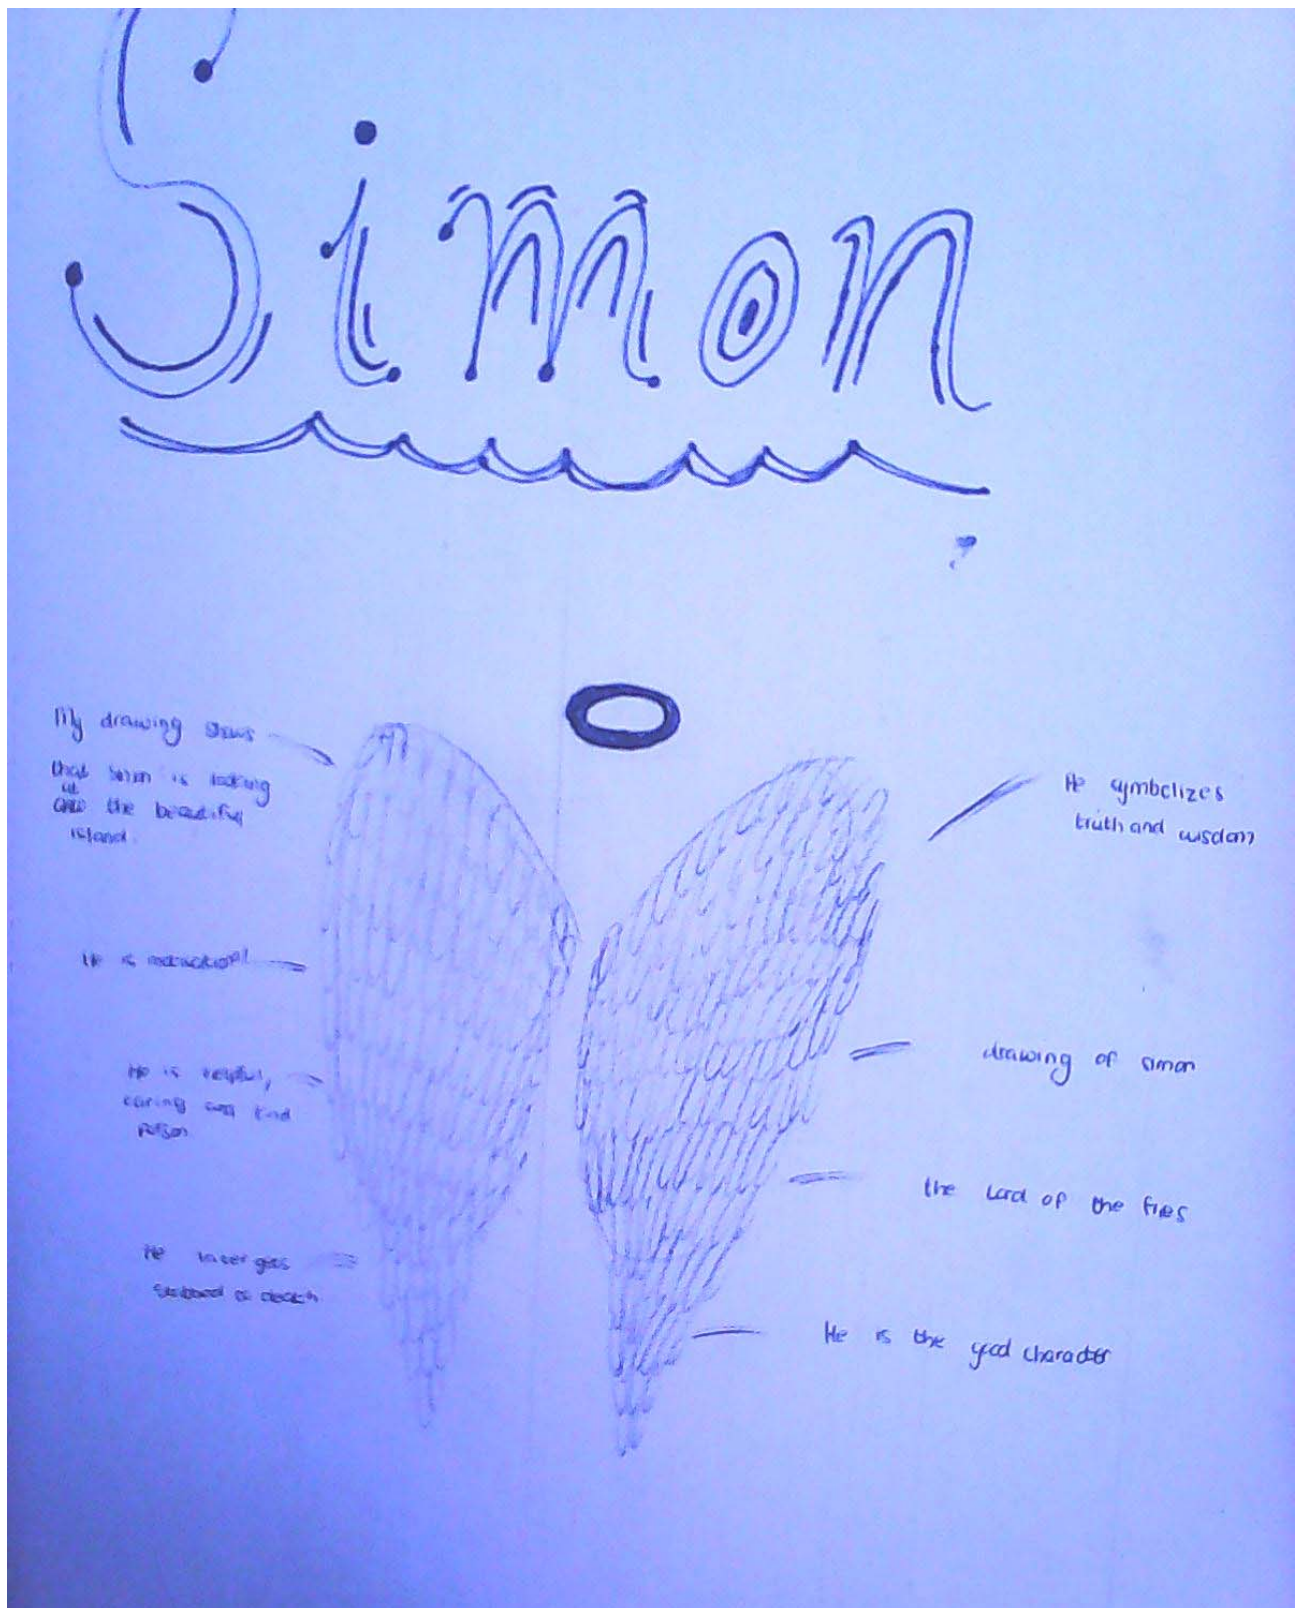 Simon
My drawing shows
that simon is looking
at the beautiful
island.
He is
He is helpful,
caring and kind
person
He later gets
stabbed to death
He symbolizes
truth and wisdom
drawing of simon
the Lord of the flies
He is the good character